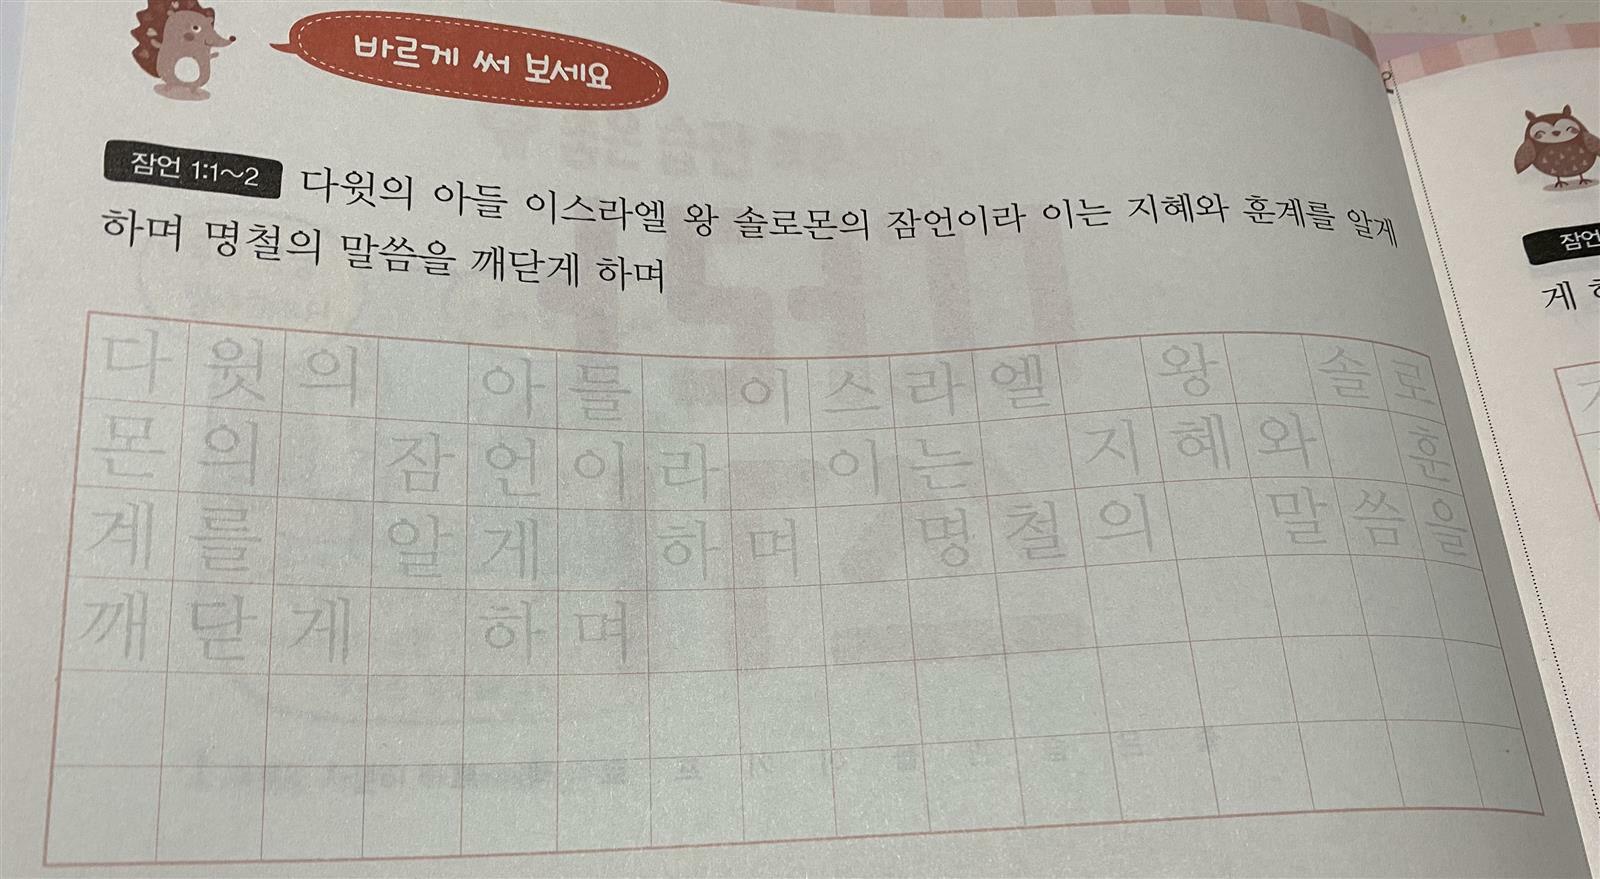 바르게 써 보세요
잠언 1:1~2 다윗의 아들 이스라엘 왕 솔로몬의 잠언이라 이는 지혜와 훈계를 알게
하며 명철의 말씀을 깨닫게 하며
다윗의 아들 이스라엘 왕 솔로
몬의 잠언이라 이는 지혜와 훈
계를 알게 하며 명철의 말씀을
깨닫게 하며
잠언
게